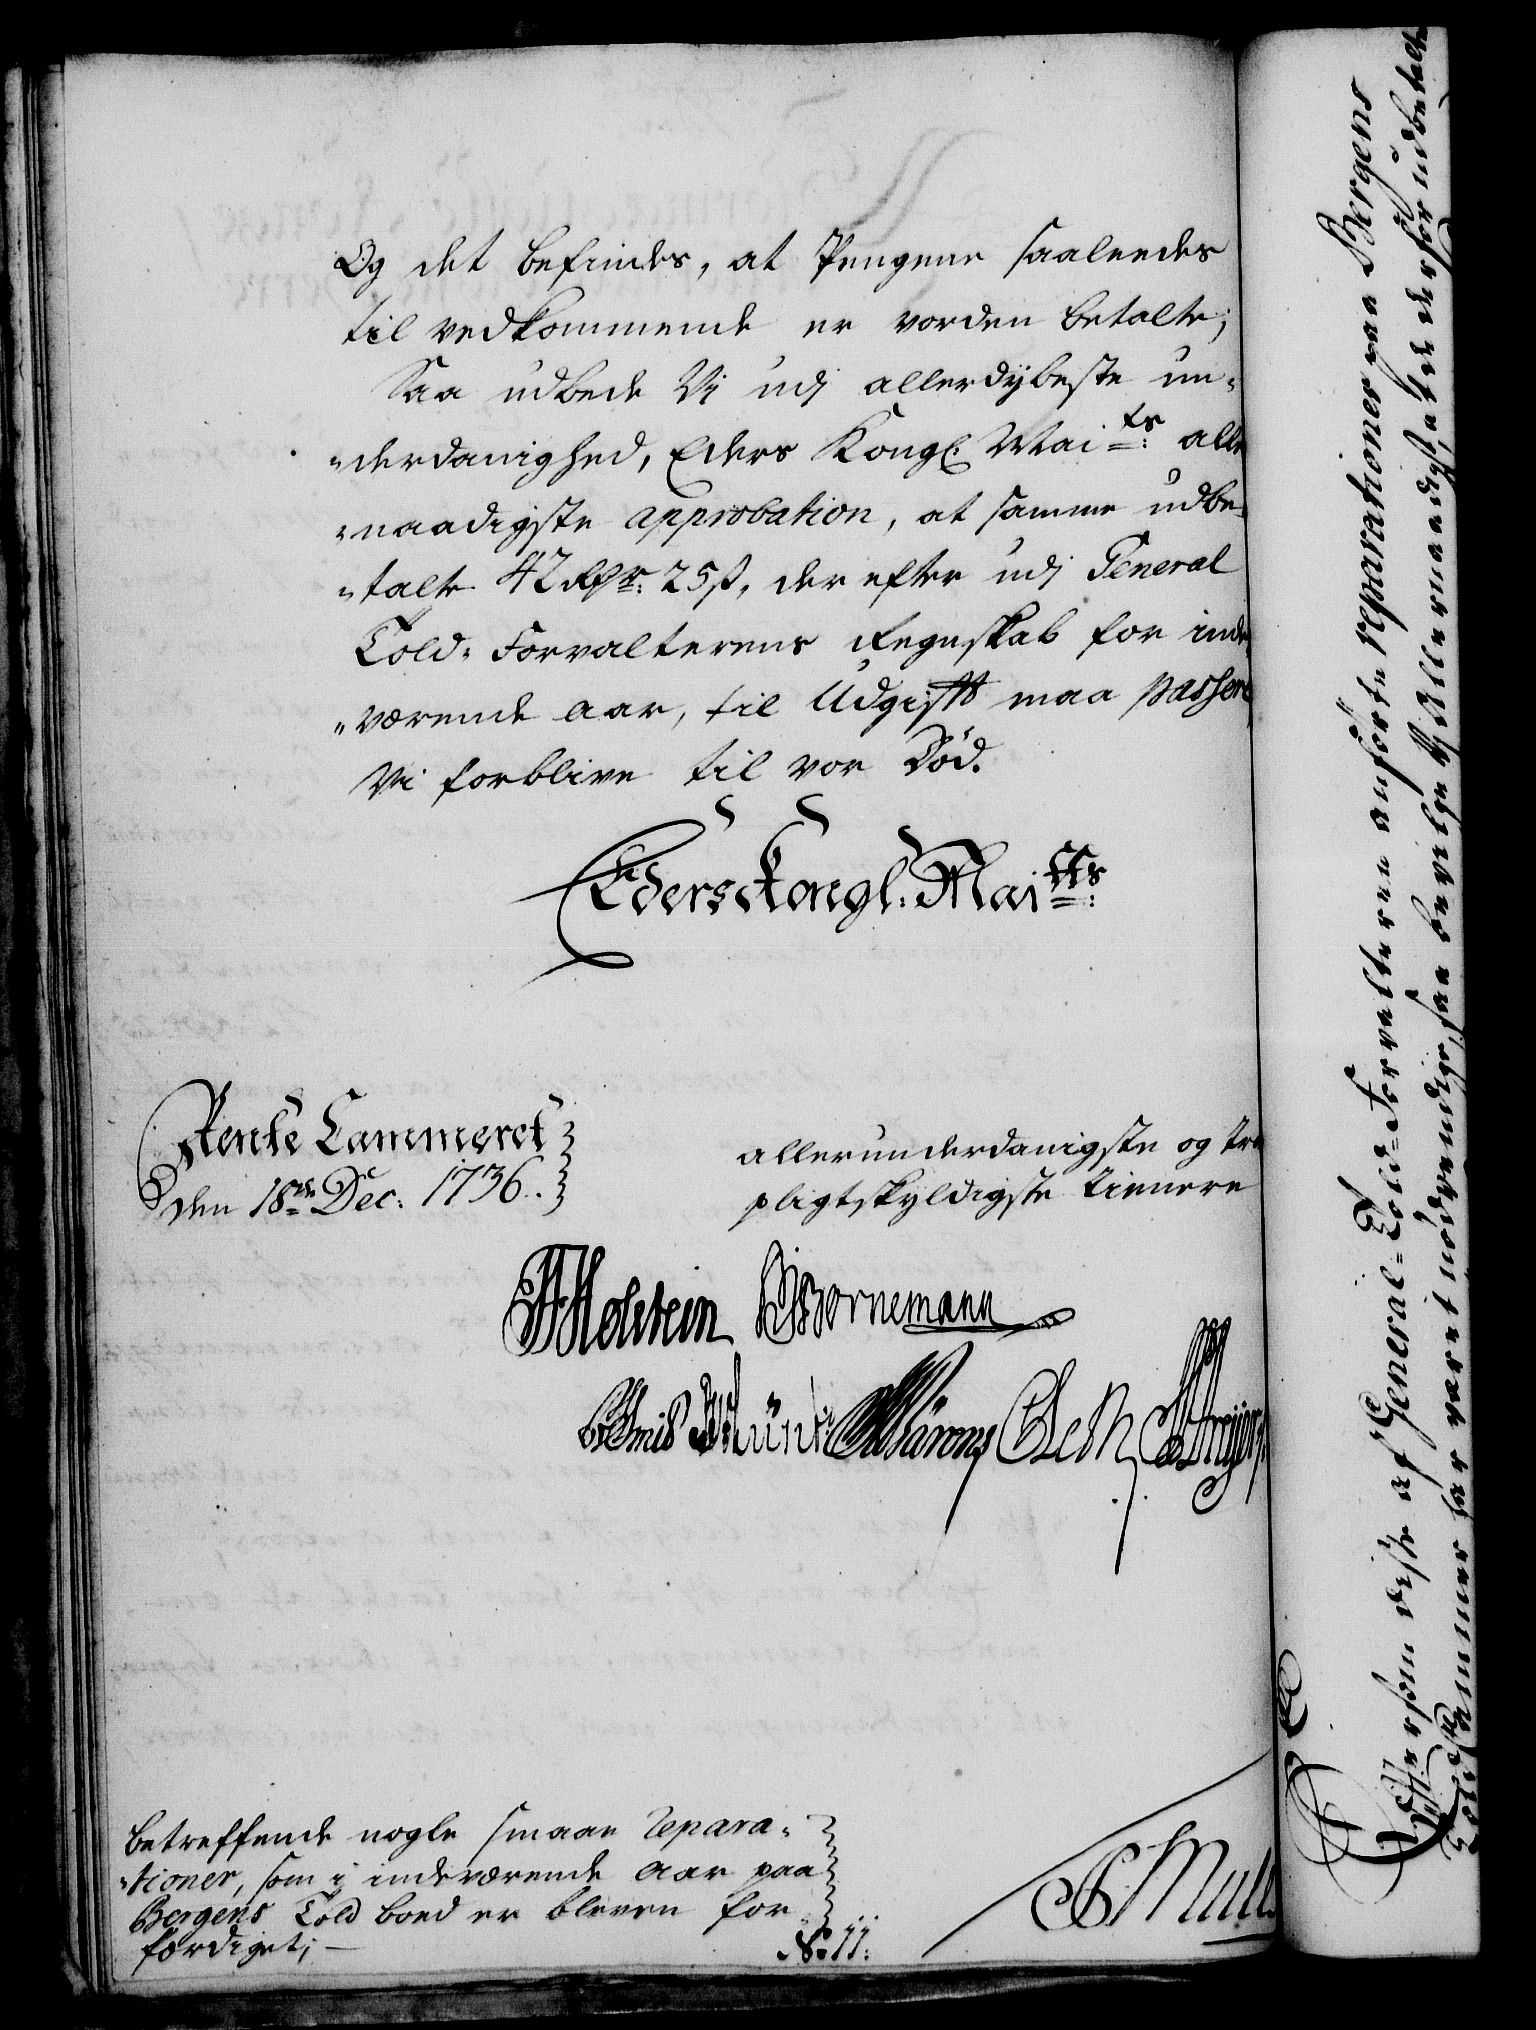 Og det befindes, at Pengene saaleedes
til vedkommende er vorden betalte;
Saa udbede Vi udj allerdybeste un-
-derdanighed, Eders Kongl. Mai^ts: aller
-naadigste approbation, at samme udbe-
-talte 42 Rdr: 25 ß, derefter udj General
Told-Forvalterens Regnskab for inde
-værende aar, til Udgift maa passere
Vi forblive til vor Död.
Eders Kongl: Mai^tts:
Rente Cammeret
den 18^de Dec: 1736.
allerunderdanigste og tro
pligtskyldigste tienere
Holstein Bornemann
betreffende nogle smaae repara-
-tioner, som i indeværende aar paa
Bergens Told boed er bleven for
færdiget;
No: 11:
Eftersom disse af General-Told-Forvalteren anförte reparationer paa Bergens
Toldkammer har været nödvendige, saa bevilge Vj Allernaadigst, at de derfor udbetalte